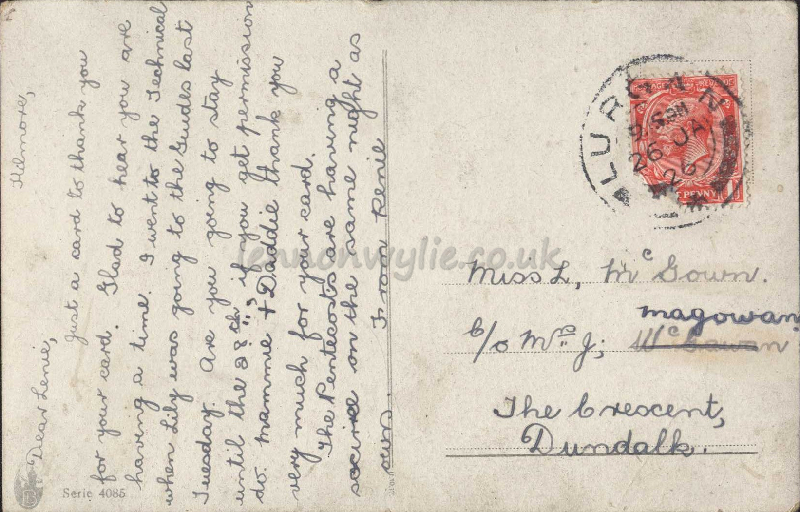 Kilmore,
Dear Lenie,
Just a card to thank you
for your card. Glad to hear you are
having a time. I went to the Technical
when Lily was going to the Guides last
Tuesday. Are you going to stay
until the 28th if you get permission
do. Mammie + Daddie thank you
very much for your card.
The Pentecosts are having a
soiree on the same night as
ours. From Renie
Serie 4085
LURGAN
26 JA
26
Miss L, Mc Gown.
magowan
c/o Mrs J; McCowan
The Crescent,
Dundalk.
lennonwylie.co.uk